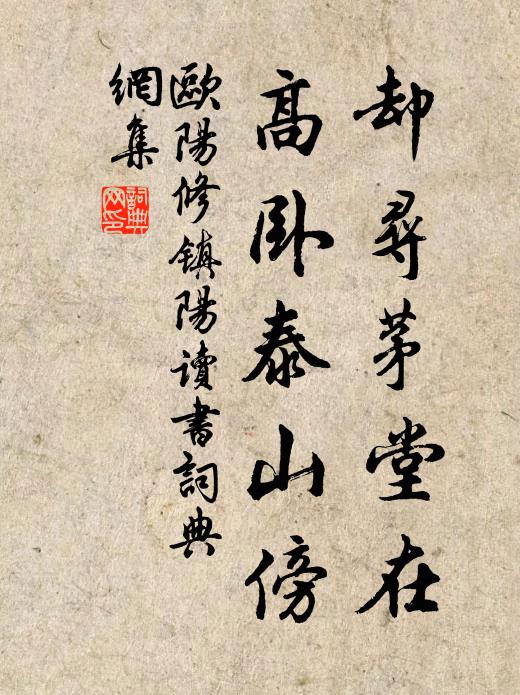 却尋茅堂在
高卧泰山傍
歐陽修鎮陽讀書詞典
網集
詞典
网印